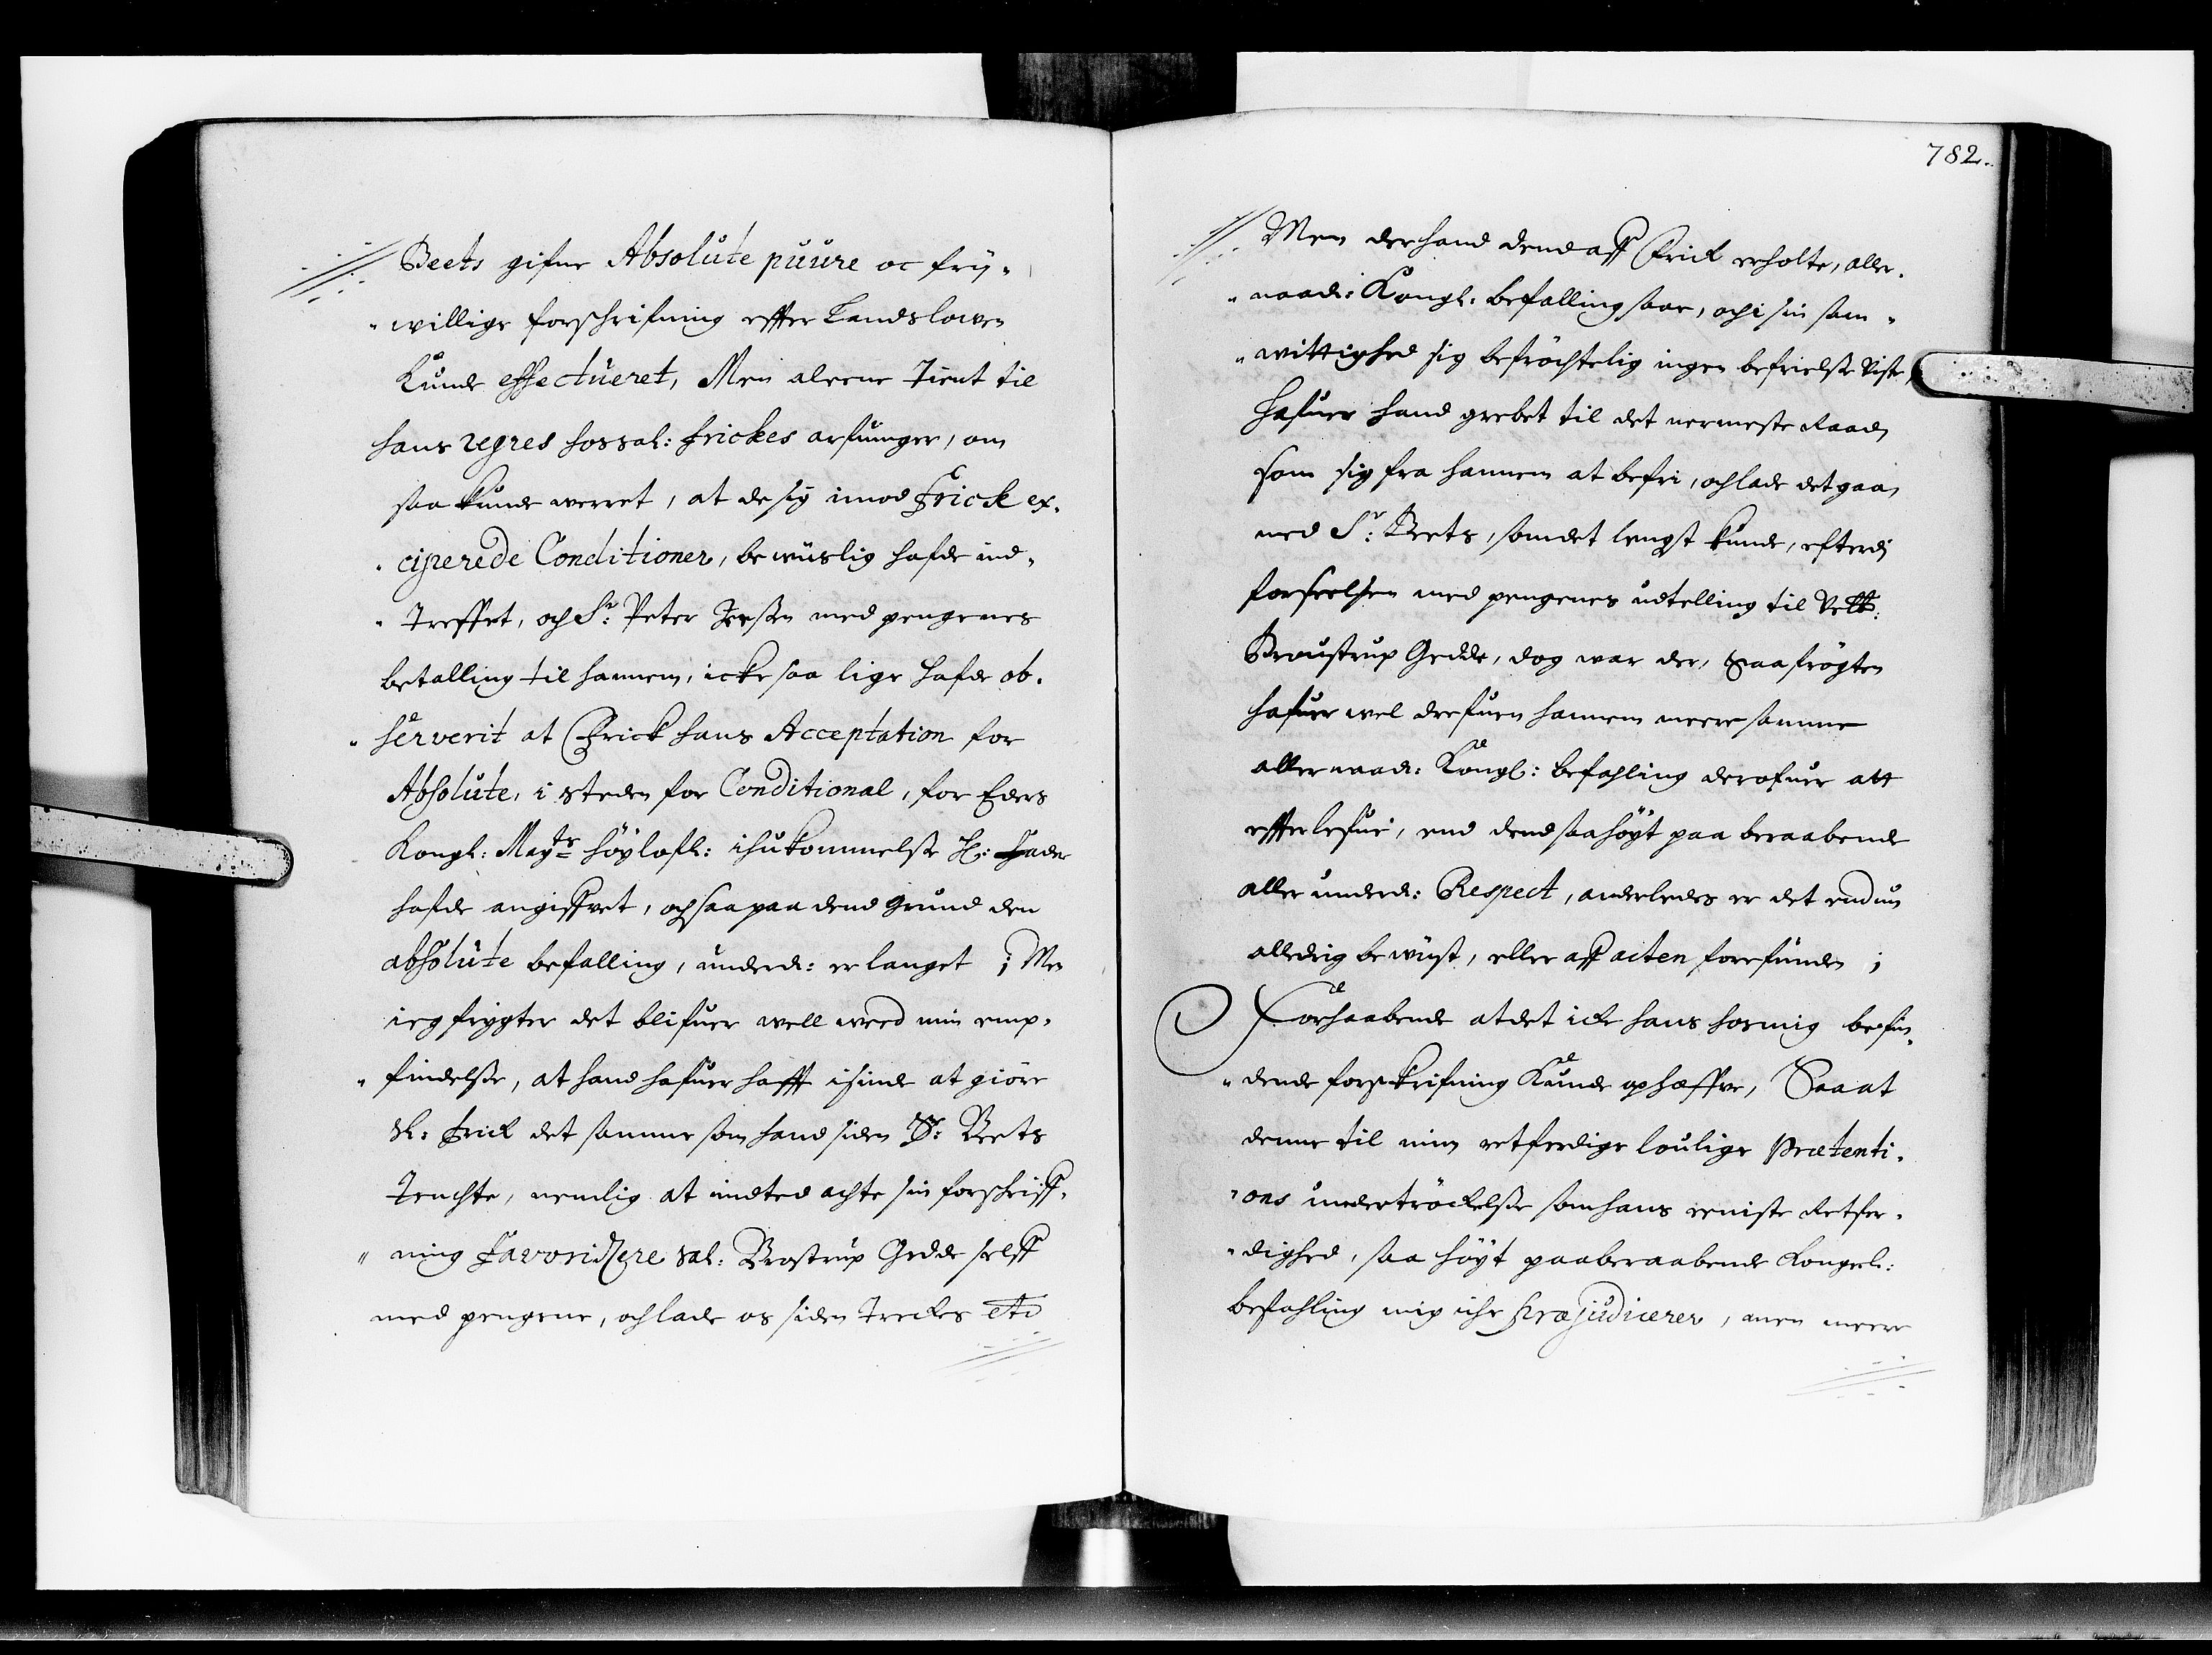 Beets gifne Absolute puure oc fry-
willige forschrifning effter Landslowen
Kunde effectueret, Men aleene Tient til
hans regres hos sal: Frickes arfuinger, om
saa kunde werret, at de sig imod Frick ex-
ciperede Conditioner, bewüslig hafde ind-
Treffet, och Sr: Peter Jessen med pengenes
betalling til hannem, icke saa lige hafde ob-
serverit at Frick hans Acceptation for
Absolute, i steden for Conditional, for Eders
Kongl: Mayts höylofl: ihukommelse H: Fader
hafde angiffvet, och saa paa dend Grund den
absolute befalling, underd: erlanget ; Men
ieg frygter det blifuer well weed min emp-
findelse, at hand hafuer hafft i sinde at giöre
Sl: Frick det samme som hand siden Sr: Beets
Tenchte, nemlig at indted achte sin forschriff-
ning Favoridzere sal: Brostrup Gedde selff
med pengene, och lade os siden Treckes etc
782.
Men der hand dend aff Frick erholte, aller-
naad: Kongl: befalling saae, och i sin sam-
wittighed sig befröchtelig ingen befrielse viste,
hafuer hand grebet til det nermeste Raad,
som sig fra hannem at befri, och lade det gaa,
med Sr: Beets, som det lengst kunde, efterdj
forseelsen med pengenes udtelling til Velb:
Broustrup Gedde, dog war der, Saa frögten
hafuer wel drefuen hannem meere samme
allernaad: Kongl: befahling derofuer att
effterlefue, end dend saa höyt paa beraabende
aller underd: Respect, anderledes er det endnu
alldrig bewüst, eller aff acten forefunden ;
Forhaabende at det icke hans hos mig befin-
dende forskrifning Kunde ophæffve, Saa at
denne til min retferdige loulige Prætenti-
ons undertröckelse som hans eeniste Retfer-
dighed, saa höyt paaberaabende Kongel:
befahling mig iche præjudicerer, men meere